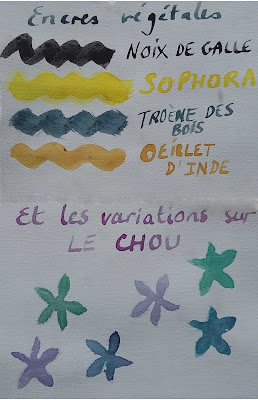 Encres végétales
NOIX DE GALLE
SOPHORA
TROÈNE DES
BOIS
OEILLET
D'INDE
Et les variations sur
LE CHOU